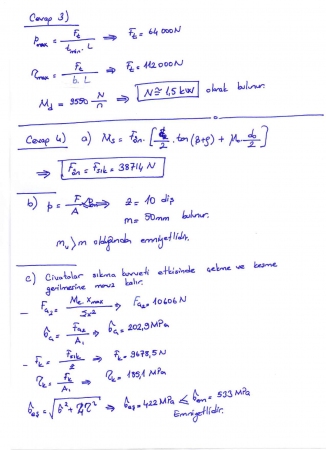 Cevap 3)
Pmax = Ft / (tmin. L) ⇒ Ft = 64 000 N
τmax = Ft / (b. L) ⇒ Ft = 112 000 N
Md = 9550 N/n ⇒ N ≅ 1,5 kW olarak bulunur.
Cevap 4) a) Ms = Fön. [d2/2 . tan (β+ρ) + μ. do/2]
⇒ Fön = Fsık = 38714 N
b) p = F/A ⇒ z = 10 diş
m = 50mm bulunur.
mv > m olduğundan emniyetlidir.
c) Civatalar sıkma kuvveti etkisinde çekme ve kesme
gerilmesine maruz kalır.
- Fa2 = Me. Xmax / Σx² ⇒ Fa2 = 10606 N
σa = Fa2 / A1 ⇒ σa = 202,9 MPa
- Fk = Fsık / 2 ⇒ Fk = 9678,5 N
τk = Fk / A1 ⇒ τk = 185,1 MPa
σeş = √(σ² + 4τ²) ⇒ σeş = 422 MPa ≤ σem = 533 MPa
Emniyetlidir.